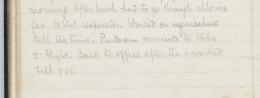 morning. After lunch had to go through chlorine
gas to test respirator. Worked on my machine
till tea time. Purdom arrived to 48th
C. Flight. Back to office after tea & worked
till 7.15.